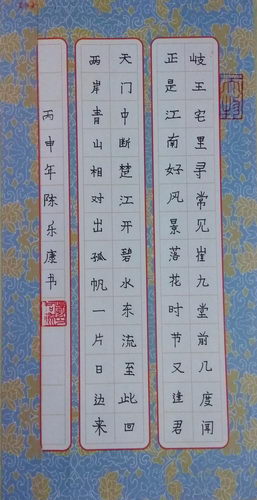 岐王宅里寻常见崔九堂前几度闻
正是江南好风景落花时节又逢君
天门中断楚江开碧水东流至此回
两岸青山相对出孤帆一片日边来
丙申年陈乐庚书